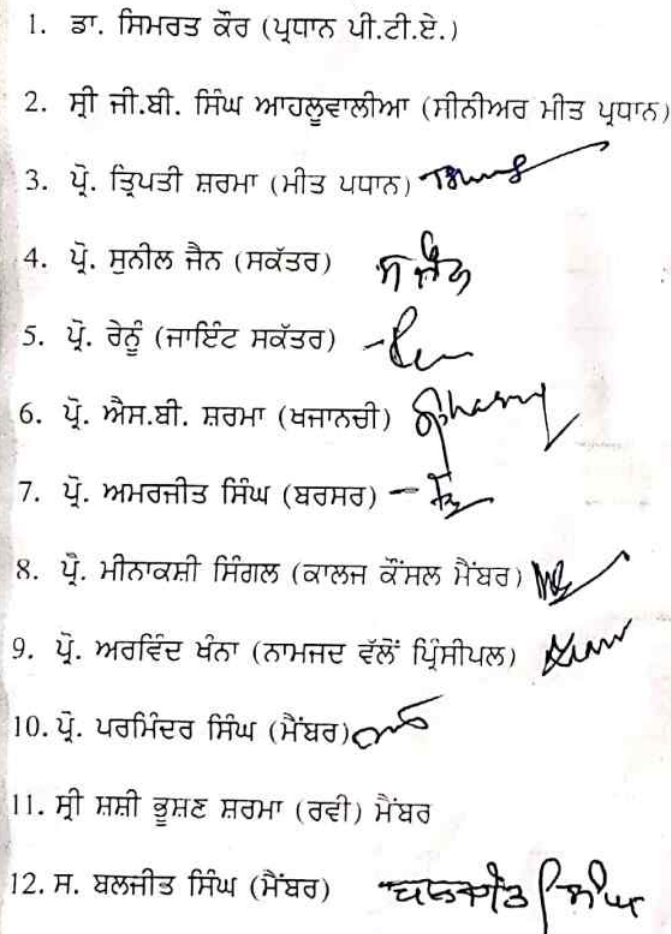 1. ਡਾ. ਸਿਮਰਤ ਕੌਰ (ਪ੍ਰਧਾਨ ਪੀ.ਟੀ.ਏ.)
2. ਸ੍ਰੀ ਜੀ.ਬੀ. ਸਿੰਘ ਆਹਲੂਵਾਲੀਆ (ਸੀਨੀਅਰ ਮੀਤ ਪ੍ਰਧਾਨ)
3. ਪ੍ਰੋ. ਤ੍ਰਿਪਤੀ ਸ਼ਰਮਾ (ਮੀਤ ਪਧਾਨ)
4. ਪ੍ਰੋ. ਸੁਨੀਲ ਜੈਨ (ਸਕੱਤਰ) ਸ ਜੈਨ
5. ਪ੍ਰੋ. ਰੇਨੂੰ (ਜਾਇੰਟ ਸਕੱਤਰ)
6. ਪ੍ਰੋ. ਐਸ.ਬੀ. ਸ਼ਰਮਾ (ਖਜਾਨਚੀ)
7. ਪ੍ਰੋ. ਅਮਰਜੀਤ ਸਿੰਘ (ਬਰਸਰ)
8. ਪ੍ਰੋ. ਮੀਨਾਕਸ਼ੀ ਸਿੰਗਲ (ਕਾਲਜ ਕੌਂਸਲ ਮੈਂਬਰ)
9. ਪ੍ਰੋ. ਅਰਵਿੰਦ ਖੰਨਾ (ਨਾਮਜਦ ਵੱਲੋਂ ਪ੍ਰਿੰਸੀਪਲ)
10. ਪ੍ਰੋ. ਪਰਮਿੰਦਰ ਸਿੰਘ (ਮੈਂਬਰ)
11. ਸ੍ਰੀ ਸਸ਼ੀ ਭੂਸ਼ਣ ਸ਼ਰਮਾ (ਰਵੀ) ਮੈਂਬਰ
12. ਸ. ਬਲਜੀਤ ਸਿੰਘ (ਮੈਂਬਰ) ਬਲਜੀਤ ਸਿੰਘ